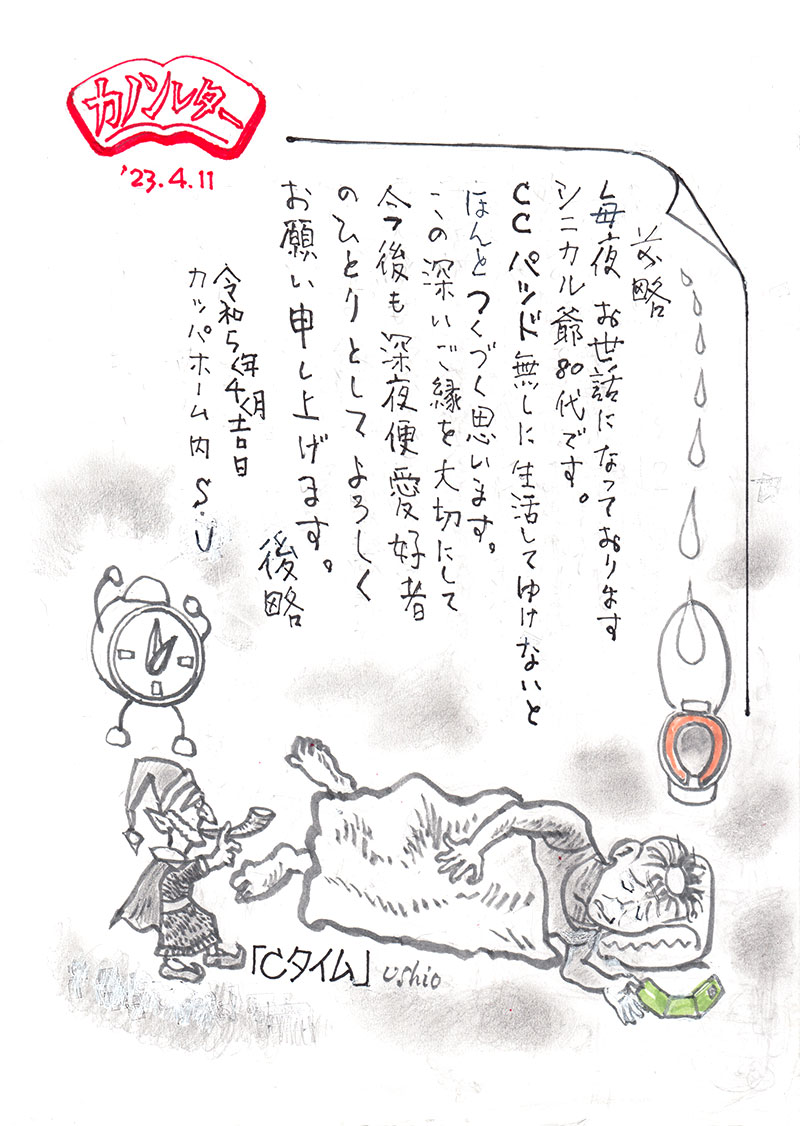 カノンレター
'23.4.11
前略
毎夜 お世話になっております
シニカル爺80代です。
CCパッド無しに生活してゆけないと
ほんとつくづく思います。
この深いご縁を大切にして
今後も深夜便愛好者
のひとりとしてよろしく
お願い申し上げます。
後略
令和5年4月吉日
カッパホーム内 S.U
「Cタイム」 ushio